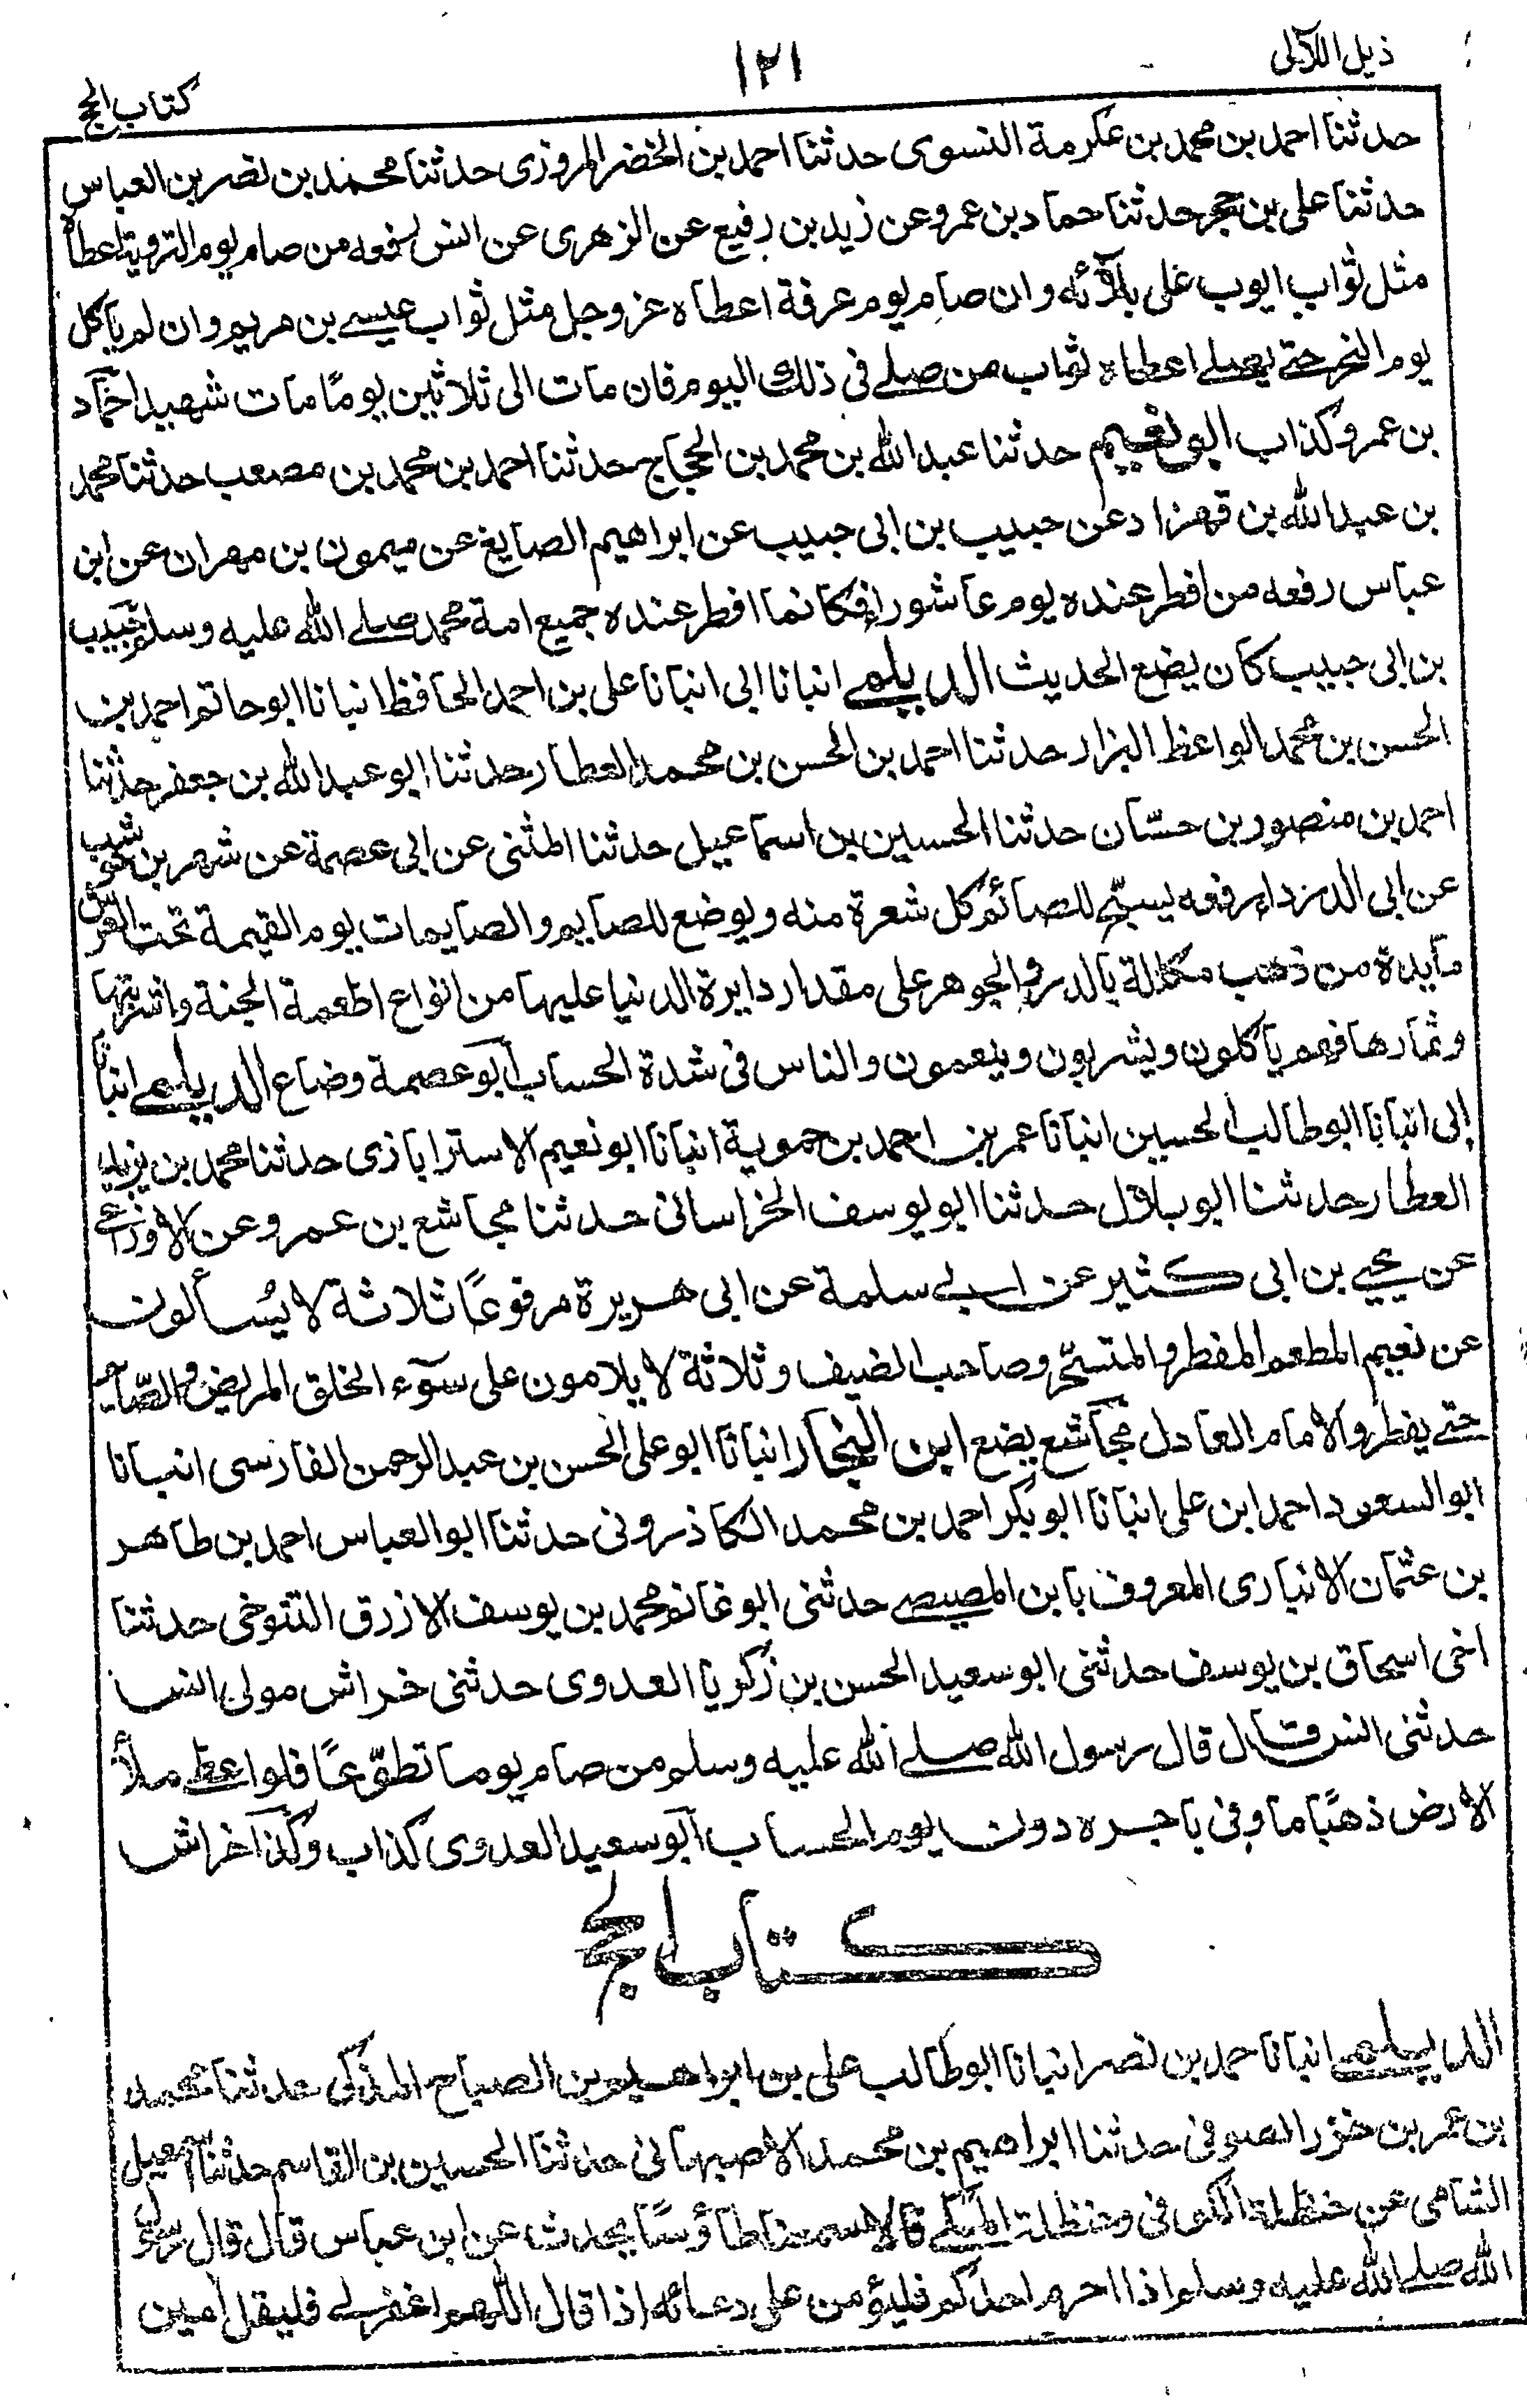 ذيل اللآلى
١٢١
كتاب الحج
حدثنا احمد بن محمد بن عكرمة النسوى حدثنا احمد بن الخضر المروزى حدثنا محمد بن نصر بن العباس
حدثنا على بن حجر حدثنا حماد بن عمرو عن زيد بن رفيع عن الزهرى عن انس رفعه من صام يوم التروية اعطاه
مثل ثواب ايوب على بلآئه وان صام يوم عرفة اعطاه عز وجل مثل ثواب عيسى بن مريم وان لم ياكل
يوم النحر حتى يصلى اعطاه ثواب من صلى فى ذلك اليوم فان مات الى ثلاثين يومًا مات شهيدا حماد
بن عمرو كذاب ابو نعيم حدثنا عبد الله بن محمد بن الحجاج حدثنا احمد بن محمد بن مصعب حدثنا محمد
بن عبد الله بن قهزاد عن حبيب بن ابى حبيب عن ابراهيم الصايغ عن ميمون بن مهران عن ابن
عباس رفعه من افطر عنده يوم عاشورا فكانما افطر عنده جميع امة محمد صلى الله عليه وسلم حبيب
بن ابى حبيب كان يضع الحديث الديلمى انبانا ابى انبانا على بن احمد الحافظ انبانا ابو حاتم احمد بن
الحسن بن محمد الواعظ البزار حدثنا احمد بن الحسن بن محمد العطار حدثنا ابو عبد الله بن جعفر حدثنا
احمد بن منصور بن حسّان حدثنا الحسين بن اسماعيل حدثنا المثنى عن ابى عصمة عن شهر بن حوشب
عن ابى الدرداء رفعه يسبّح للصائم كل شعرة منه ويوضع للصايم والصايمات يوم القيمة تحت العرش
مآيدة من ذهب مكللة بالدر والجوهر على مقدار دايرة الدنيا عليها من انواع اطعمة الجنة واشربتها
وثمارها فهم ياكلون ويشربون وينعمون والناس فى شدة الحساب ابو عصمة وضاع الديلمى انبانا
ابى انبانا ابو طالب الحسين انبانا عمر بن احمد بن حموية انبانا ابو نعيم الاستراباذى حدثنا محمد بن يزيد
العطار حدثنا ابو بلال حدثنا ابو يوسف الخراسانى حدثنا مجاشع بن عمرو عن الاوزاعى
عن يحيى بن ابى كثير عن ابى سلمة عن ابى هريرة مرفوعًا ثلاثة لا يُسألون
عن نعيم المطعم المفطر والمتسحّر وصاحب الضيف وثلاثة لا يلامون على سوٓء الخلق المريض والصّآيم
حتى يفطر والامام العادل مجاشع يضع ابن النجار انبانا ابو على الحسن بن عبد الرحمن الفارسى انبانا
ابو السعود احمد ابن على انبانا ابو بكر احمد بن محمد الكاذرونى حدثنا ابو العباس احمد بن طاهر
بن عثمان الانبارى المعروف بابن المصيصى حدثنى ابو غانم محمد بن يوسف الازرق التنوخى حدثنا
اخى اسحاق بن يوسف حدثنى ابو سعيد الحسن بن زكريا العدوى حدثنى خراش مولى انس
حدثنى انس قال قال رسول الله صلى الله عليه وسلم من صام يوما تطوّعًا فلو اعطى ملأ
الارض ذهبًا ما وفى باجره دون يوم الحساب ابو سعيد العدوى كذاب وكذا خراش
كتاب الحج
الديلمى انبانا حمد بن نصر انبانا ابو طالب على بن ابراهيم بن الصباح المذكى حدثنا محمد
بن عمر بن خزر الصوفى حدثنا ابراهيم بن محمد الاصبهانى حدثنا الحسين بن القاسم حدثنا اسمعيل
الشامى عن حنظلة الكوفى وحنظلة المكى قالا سمعنا طاؤسًا يحدث عن ابن عباس قال قال رسول
الله صلى الله عليه وسلم اذا احرم احدكم فليؤمن على دعائه اذا قال اللهم اغفر لى فليقل امين